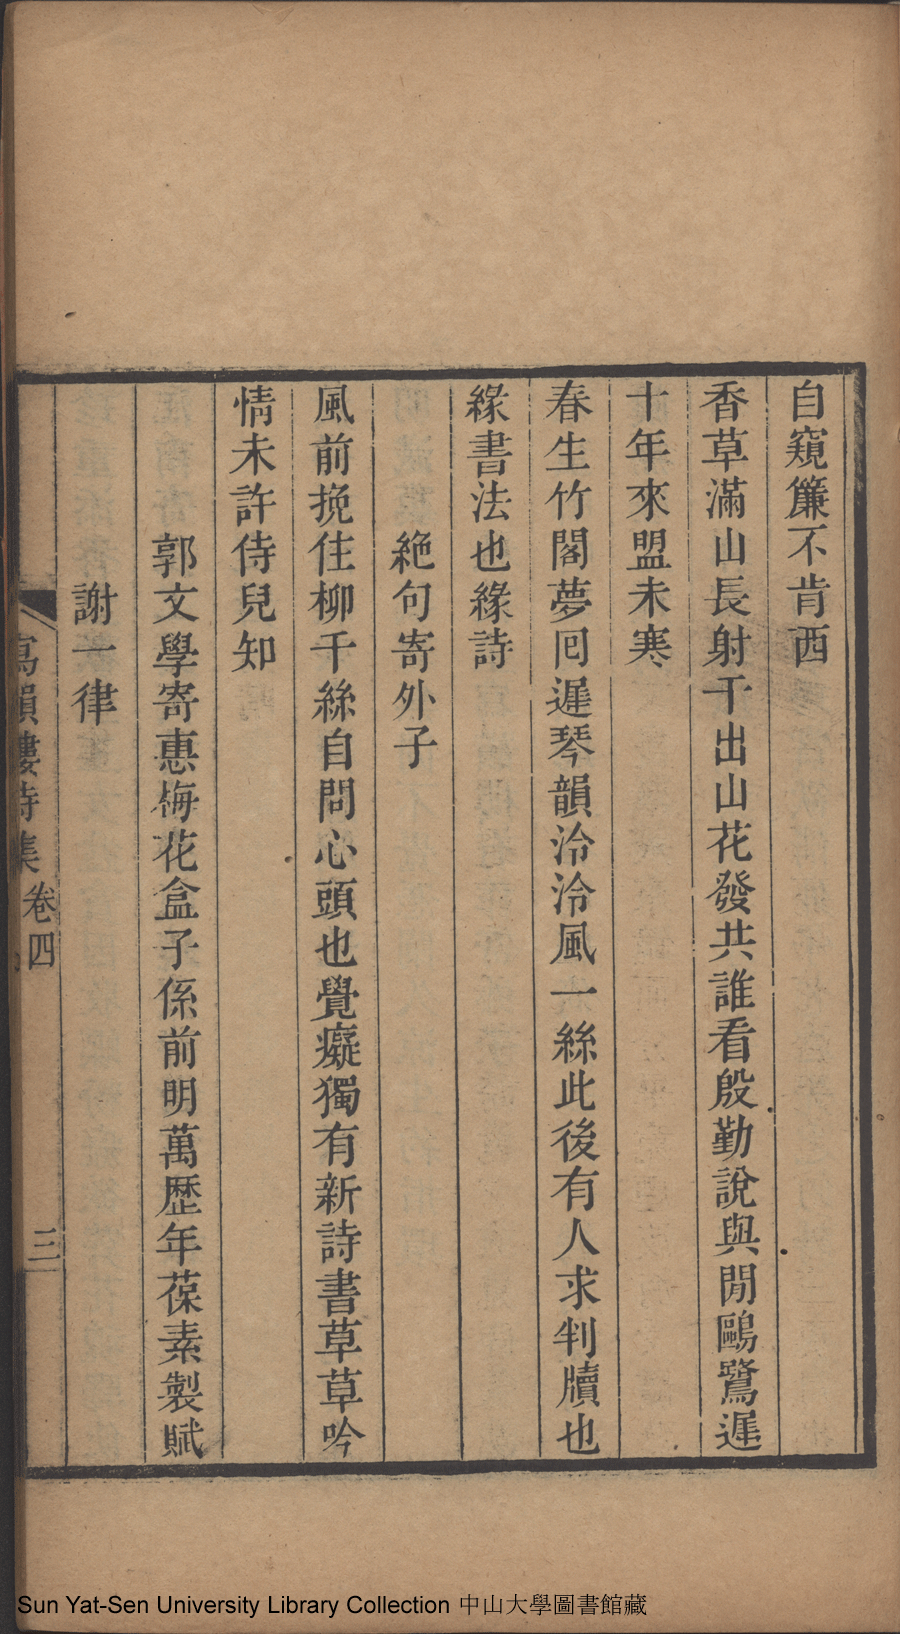 自窺簾不肯西
香草滿山長射干出山花發共誰看殷勤說與閒鷗鷺遲
十年來盟未寒
春生竹閣夢囘遲琴韻泠泠風一絲此後有人求判牘也
緣書法也緣詩
絶句寄外子
風前挽住柳千絲自問心頭也覺癡獨有新詩書草草吟
情未許侍兒知
郭文學寄惠梅花盒子係前明萬歷年葆素製賦
謝一律
寫韻樓詩集
卷四
三
Sun Yat-Sen University Library Collection 中山大學圖書館藏